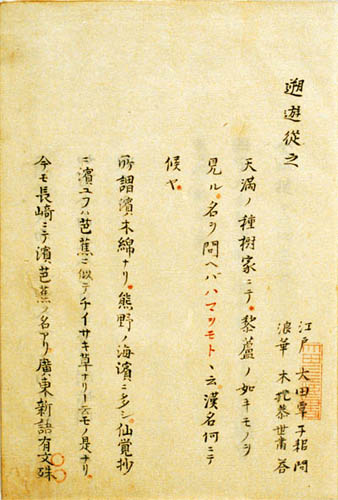 遡遊從之
江戸 太田覃子耜問
浪華 木孔恭世肅答
天満ノ種樹家ニテ藜蘆ノ如キモノヲ
見ル名ヲ問ヘバハマヲモトヽ云漢名何ニテ
候ヤ
所謂濱木綿ナリ熊野ノ海濱ニ多シ仙覚抄
ニ濱ユフハ芭蕉ニ似テチイサキ草ナリト云モノ是ナリ
今モ長崎ニテ濱芭蕉ノ名アリ廣東新語有文殊